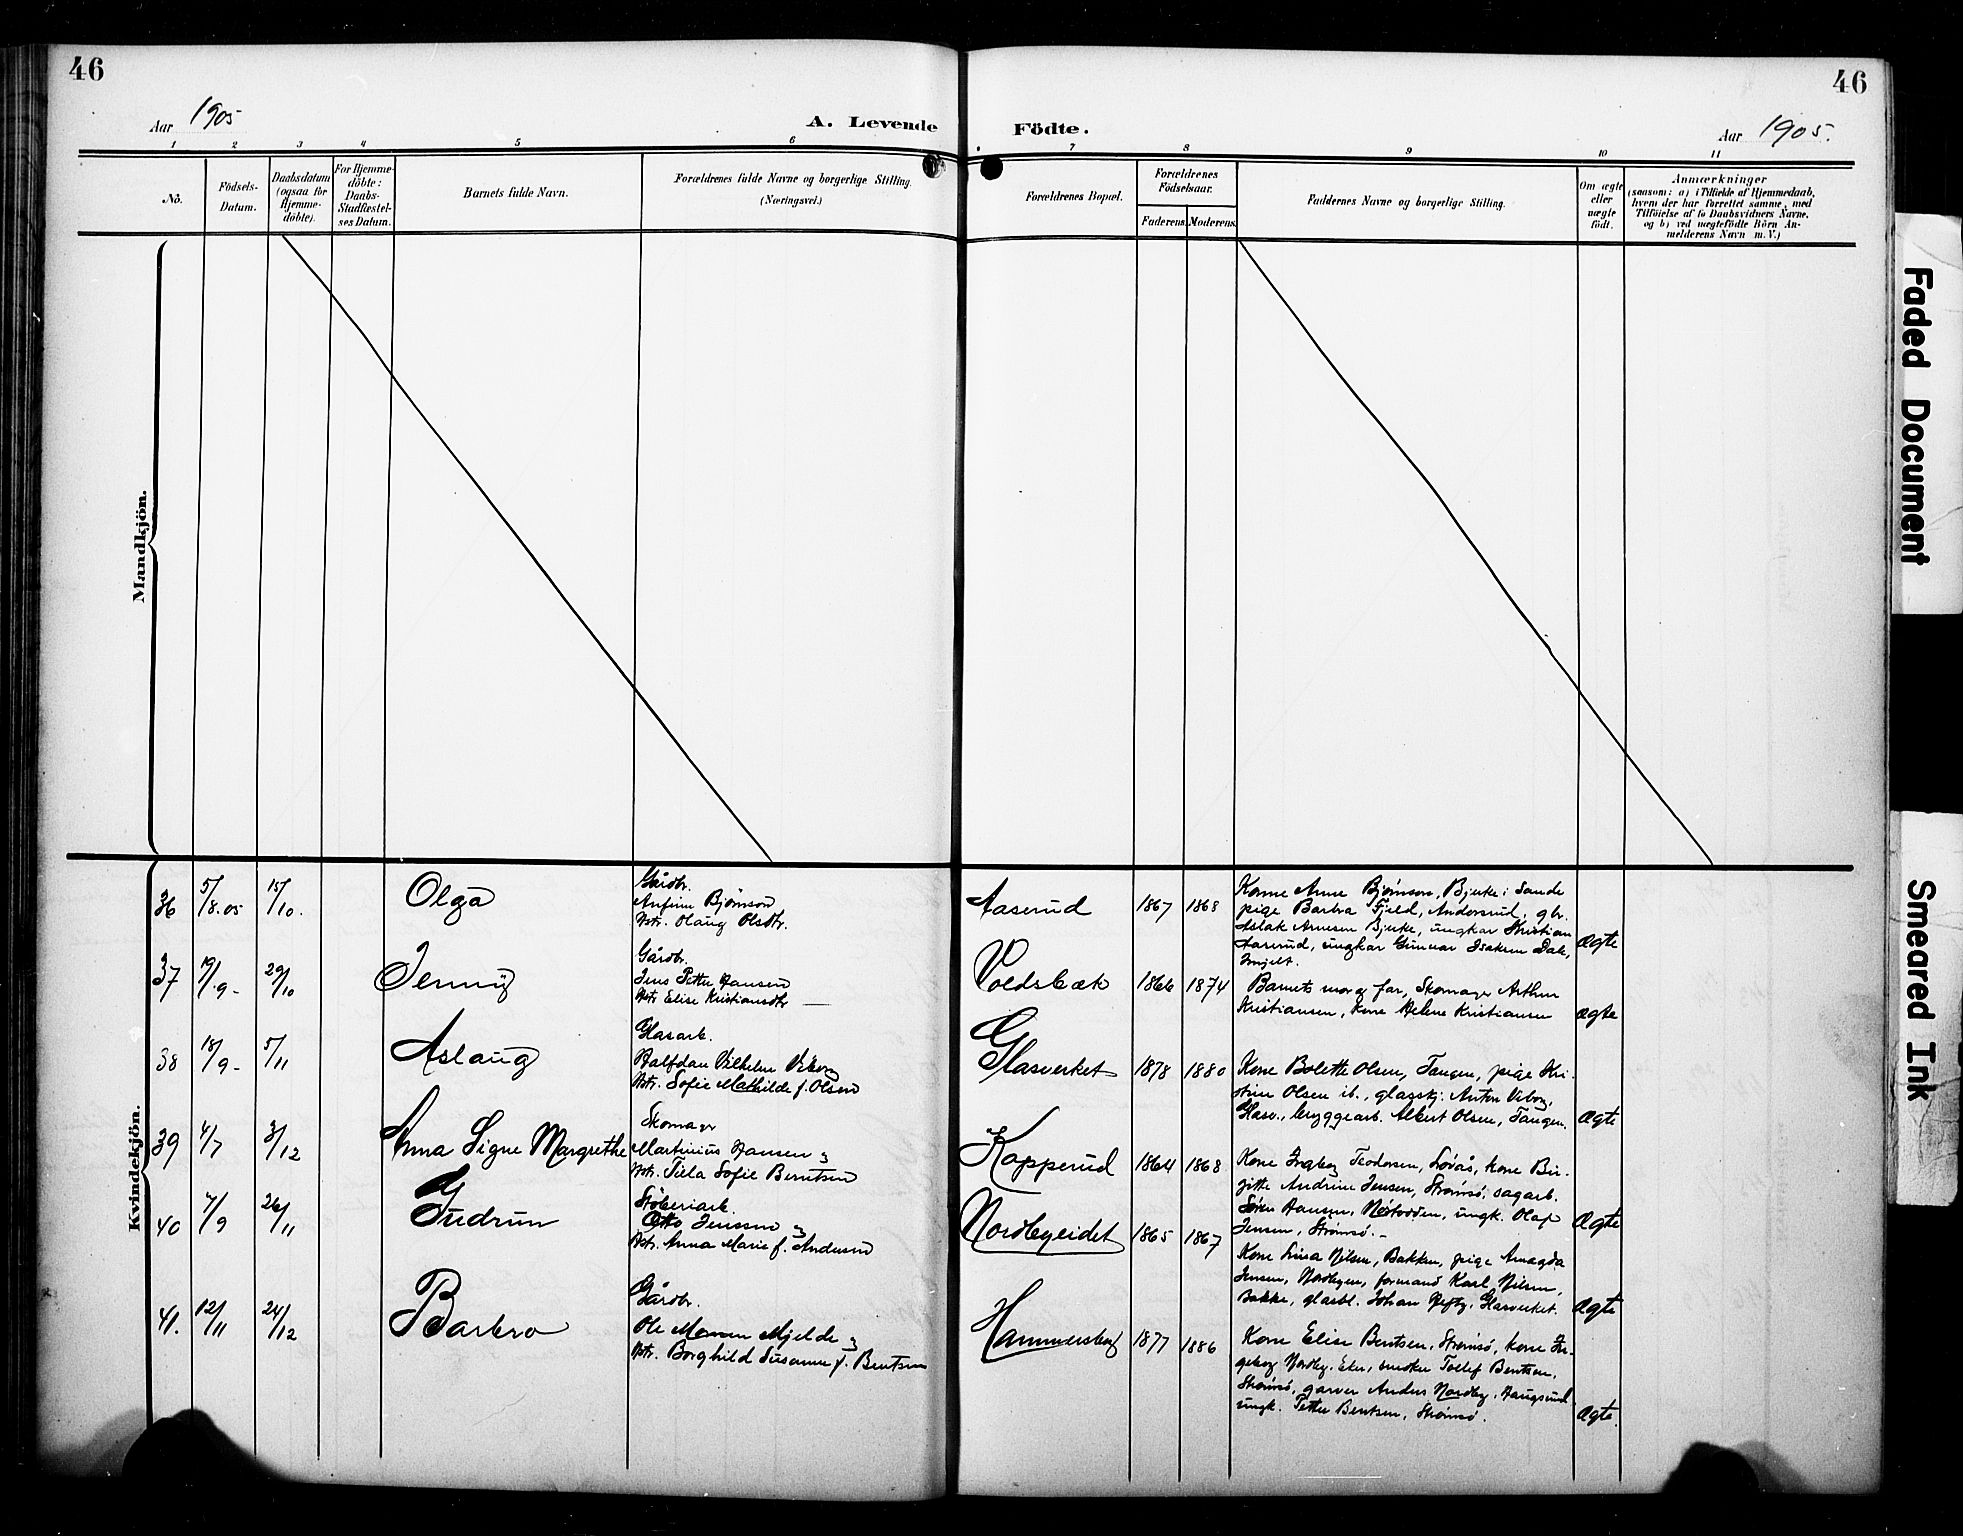 46
Aar 1905
A. Levende
Födte.
46
Aar 1905.
1 2 3 4 5 6
7 8 9 10 11
No.
Födsels-
Datum.
Daabsdatum
(ogsaa for
Hjemme-
döbte).
For Hjemme-
döbte:
Daabs-
Stadfæstel-
ses Datum.
Barnets fulde Navn.
Forældrenes fulde Navne og borgerlige Stilling.
(Næringsvei.)
Forældrenes Bopæl.
Forældrenes
Födselsaar.
Faderens. Moderens.
Faddernes Navne og borgerlige Stilling.
Om ægte
eller
uægte
födt.
Anmærkninger
(saasom: a) i Tilfælde af Hjemmedaab,
hvem der har forrettet samme, med
Tilföielse af to Daabsvidners Navne.
og b) ved uægtefödte Börn An-
melderens Navn m. V.)
Mandkjön.
Kvindekjön.
36
5/8.05
15/10.
Olga
Gårdbr.
Anfinn Bjørnson
Hstr. Olaug Olsdtr.
Aaserud
1867 1868
Kone Anne Bjørnson, Bjerke i Sande
pige Barbra Fjeld, Andorsrud, gbr.
Aslak Arnesen Bjerke, ungkar Kristian
Aaserud, ungkar Gunnar Isaksen Dale,
ægte
37
19/9-
29/10
Jenny
Gårdbr.
Jens Petter Hansen
Hstr. Elise Kristiansdtr
Voldsbæk
1866 1874
Barnets mor og far, Skomager Arthur
Kristiansen, Kone Helene Kristiansen
ægte
38
18/9-
5/11
Aslaug
Glasarb.
Halfdan Vilhelm Viborg
Hstr. Sofie Mathilde f. Olsen
Glasverket
1878 1880
Kone Bolette Olsen, Tangen, pige Kri-
stine Olsen ib., glasskj. Anton Viborg,
Glasv., bryggearb. Albert Olsen, Tangen.
ægte
39
4/7
3/12
Anna Signe Margrethe
Skomager
Martinius Hansen og
Hstr. Tilla Sofie Berntsen
Kopperud
1864 1868
Kone Ingeborg Teodorsen, Løvås, kone Bir-
gitte Andrine Jensen, Strømsø, sagarb.
Søren Hansen, Nøstodden, ungk. Olaf
Jensen, Strømsø.-
ægte
40
7/9
26/11
Gudrun
Støberiarb.
Otto Jenssen og
Hstr. Anna Marie f. Andersen
Nordbyeidet
1865 1867
Kone Lina Nilsen, Bakken, pige Amagda
Jensen, Nordbyen, formand Karl Nilsen,
Bakke, glasbl. Johan Hefty, Glasverket.
ægte
41.
12/11
24/12
Barbro
Gårdbr.
Ole Monsen Mjelde og
Hstr. Borghild Susanne f. Bentsen
Hammersborg
1877 1886
Kone Elise Bentsen, Strømsø, kone In-
geborg Nordby, Eker, snedker Tollef Bentsen,
Strømsø, garver Anders Nordby, Haugsund
ungk. Petter Bentsen, Strømsø.
ægte.
Faded Document
Smeared Ink